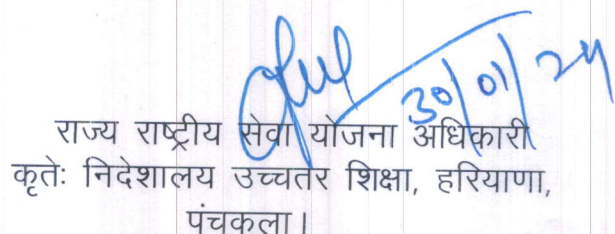 30/01/24
राज्य राष्ट्रीय सेवा योजना अधिकारी
कृतेः निदेशालय उच्चतर शिक्षा, हरियाणा,
पंचकला।